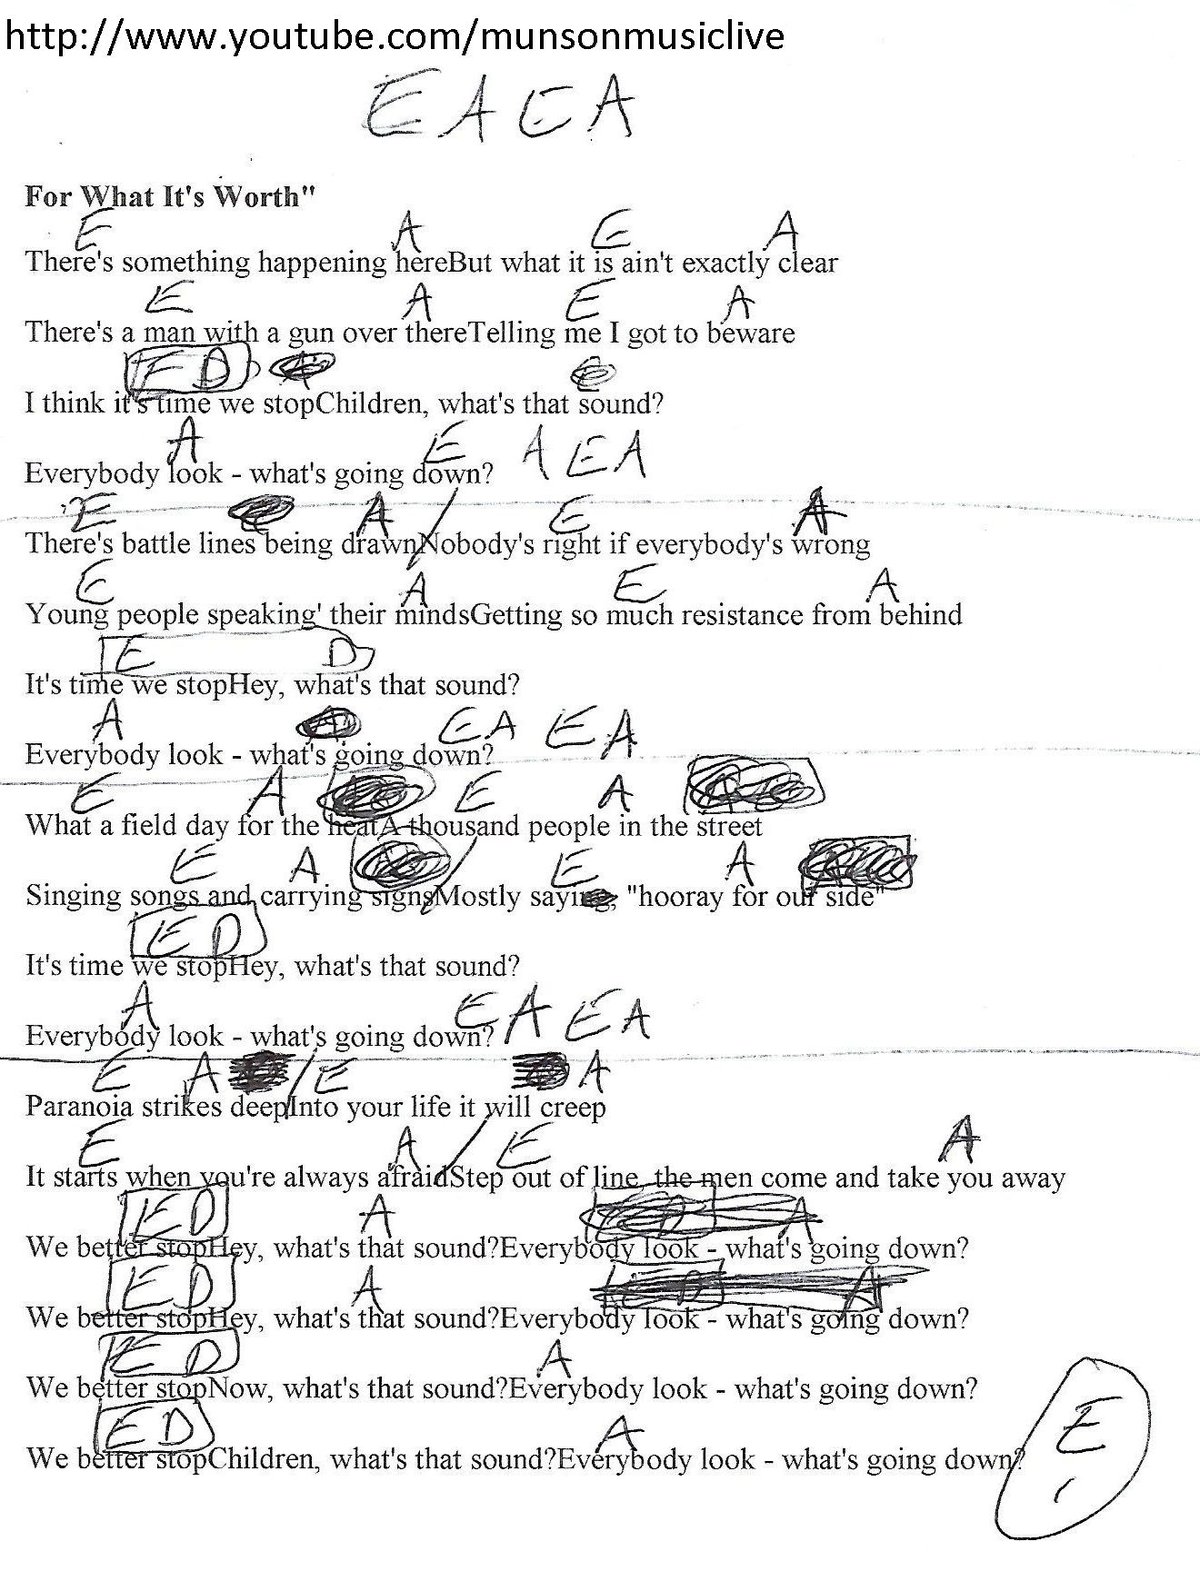 http://www.youtube.com/munsonmusiclive
E A E A
For What It's Worth"
E A E A
There's something happening hereBut what it is ain't exactly clear
E A E A
There's a man with a gun over thereTelling me I got to beware
E D
I think it's time we stopChildren, what's that sound?
A E A E A
Everybody look - what's going down?
E A E A
There's battle lines being drawnNobody's right if everybody's wrong
E A E A
Young people speaking' their mindsGetting so much resistance from behind
E D
It's time we stopHey, what's that sound?
A E A E A
Everybody look - what's going down?
E A E A
What a field day for the heatA thousand people in the street
E A E A
Singing songs and carrying signsMostly saying, "hooray for our side"
E D
It's time we stopHey, what's that sound?
A E A E A
Everybody look - what's going down?
E A E A
Paranoia strikes deepInto your life it will creep
E A E A
It starts when you're always afraidStep out of line, the men come and take you away
E D A
We better stopHey, what's that sound?Everybody look - what's going down?
E D A
We better stopHey, what's that sound?Everybody look - what's going down?
E D A
We better stopNow, what's that sound?Everybody look - what's going down?
E D A E
We better stopChildren, what's that sound?Everybody look - what's going down?